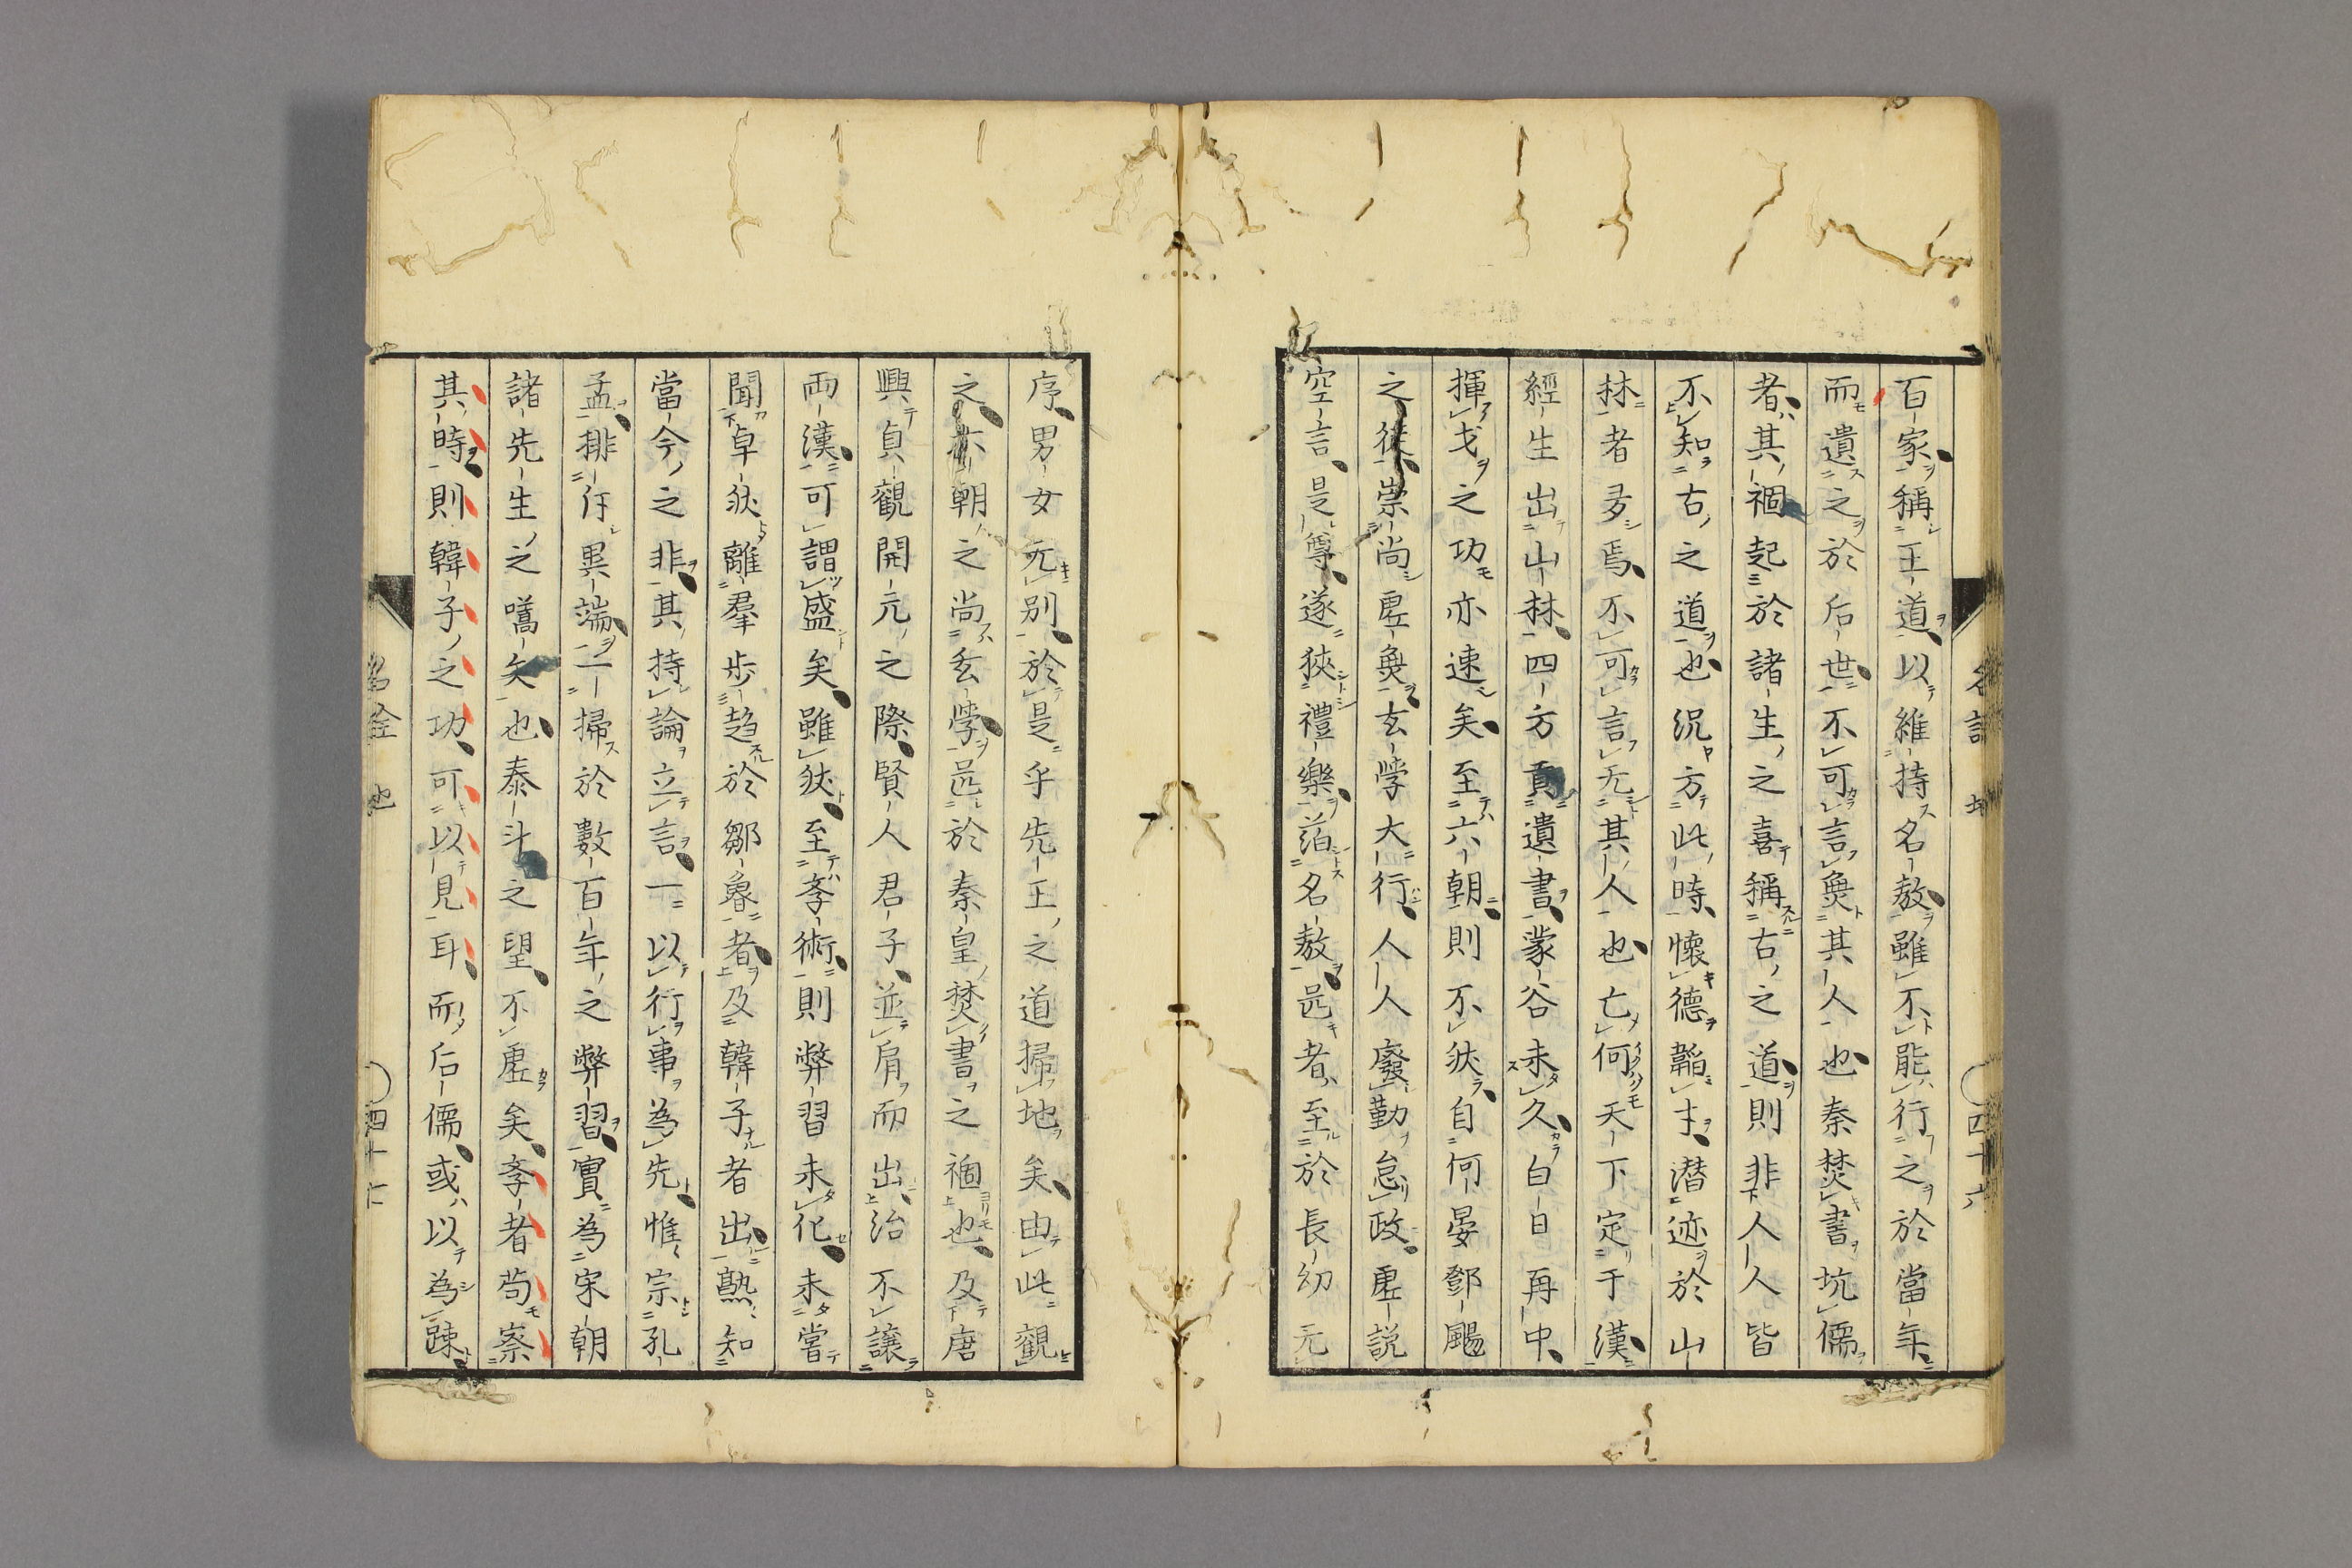 百家稱王道以維持名教雖不能行之於當年
而遺之於后世不可言無其人也秦焚書坑儒
者其禍起於諸生之喜稱古之道則非人人皆
不知古之道也況方此時懷德韜才潜迹於山
林者多焉不可言无其人也亡何天下定于漢
經生出山林四方貢遺書蒙谷未久白日再中
揮戈之功亦速矣至六朝則不然自何晏鄧颺
之徒崇尚虛無玄學大行人人廢勤怠政虛說
空言是尊遂狹禮樂蒞名教甚者至於長幼无
序男女无別於是乎先王之道掃地矣由此觀
之亦朝之尚玄學甚於秦皇焚書之禍也及唐
興貞觀開元之際賢人君子並肩而出治不讓
両漢可謂盛矣雖然至学術則弊習未化未嘗
聞卓然離羣步趨於鄒魯者及韓子者出熟知
當今之非其持論立言一以行事為先惟宗孔
孟排斥異端一掃於數百年之弊習實為宋朝
諸先生之嚆矢也泰斗之望不虛矣学者苟察
其時則韓子之功可以見耳而后儒或以為踈
名詮 地
四十六
名詮 地